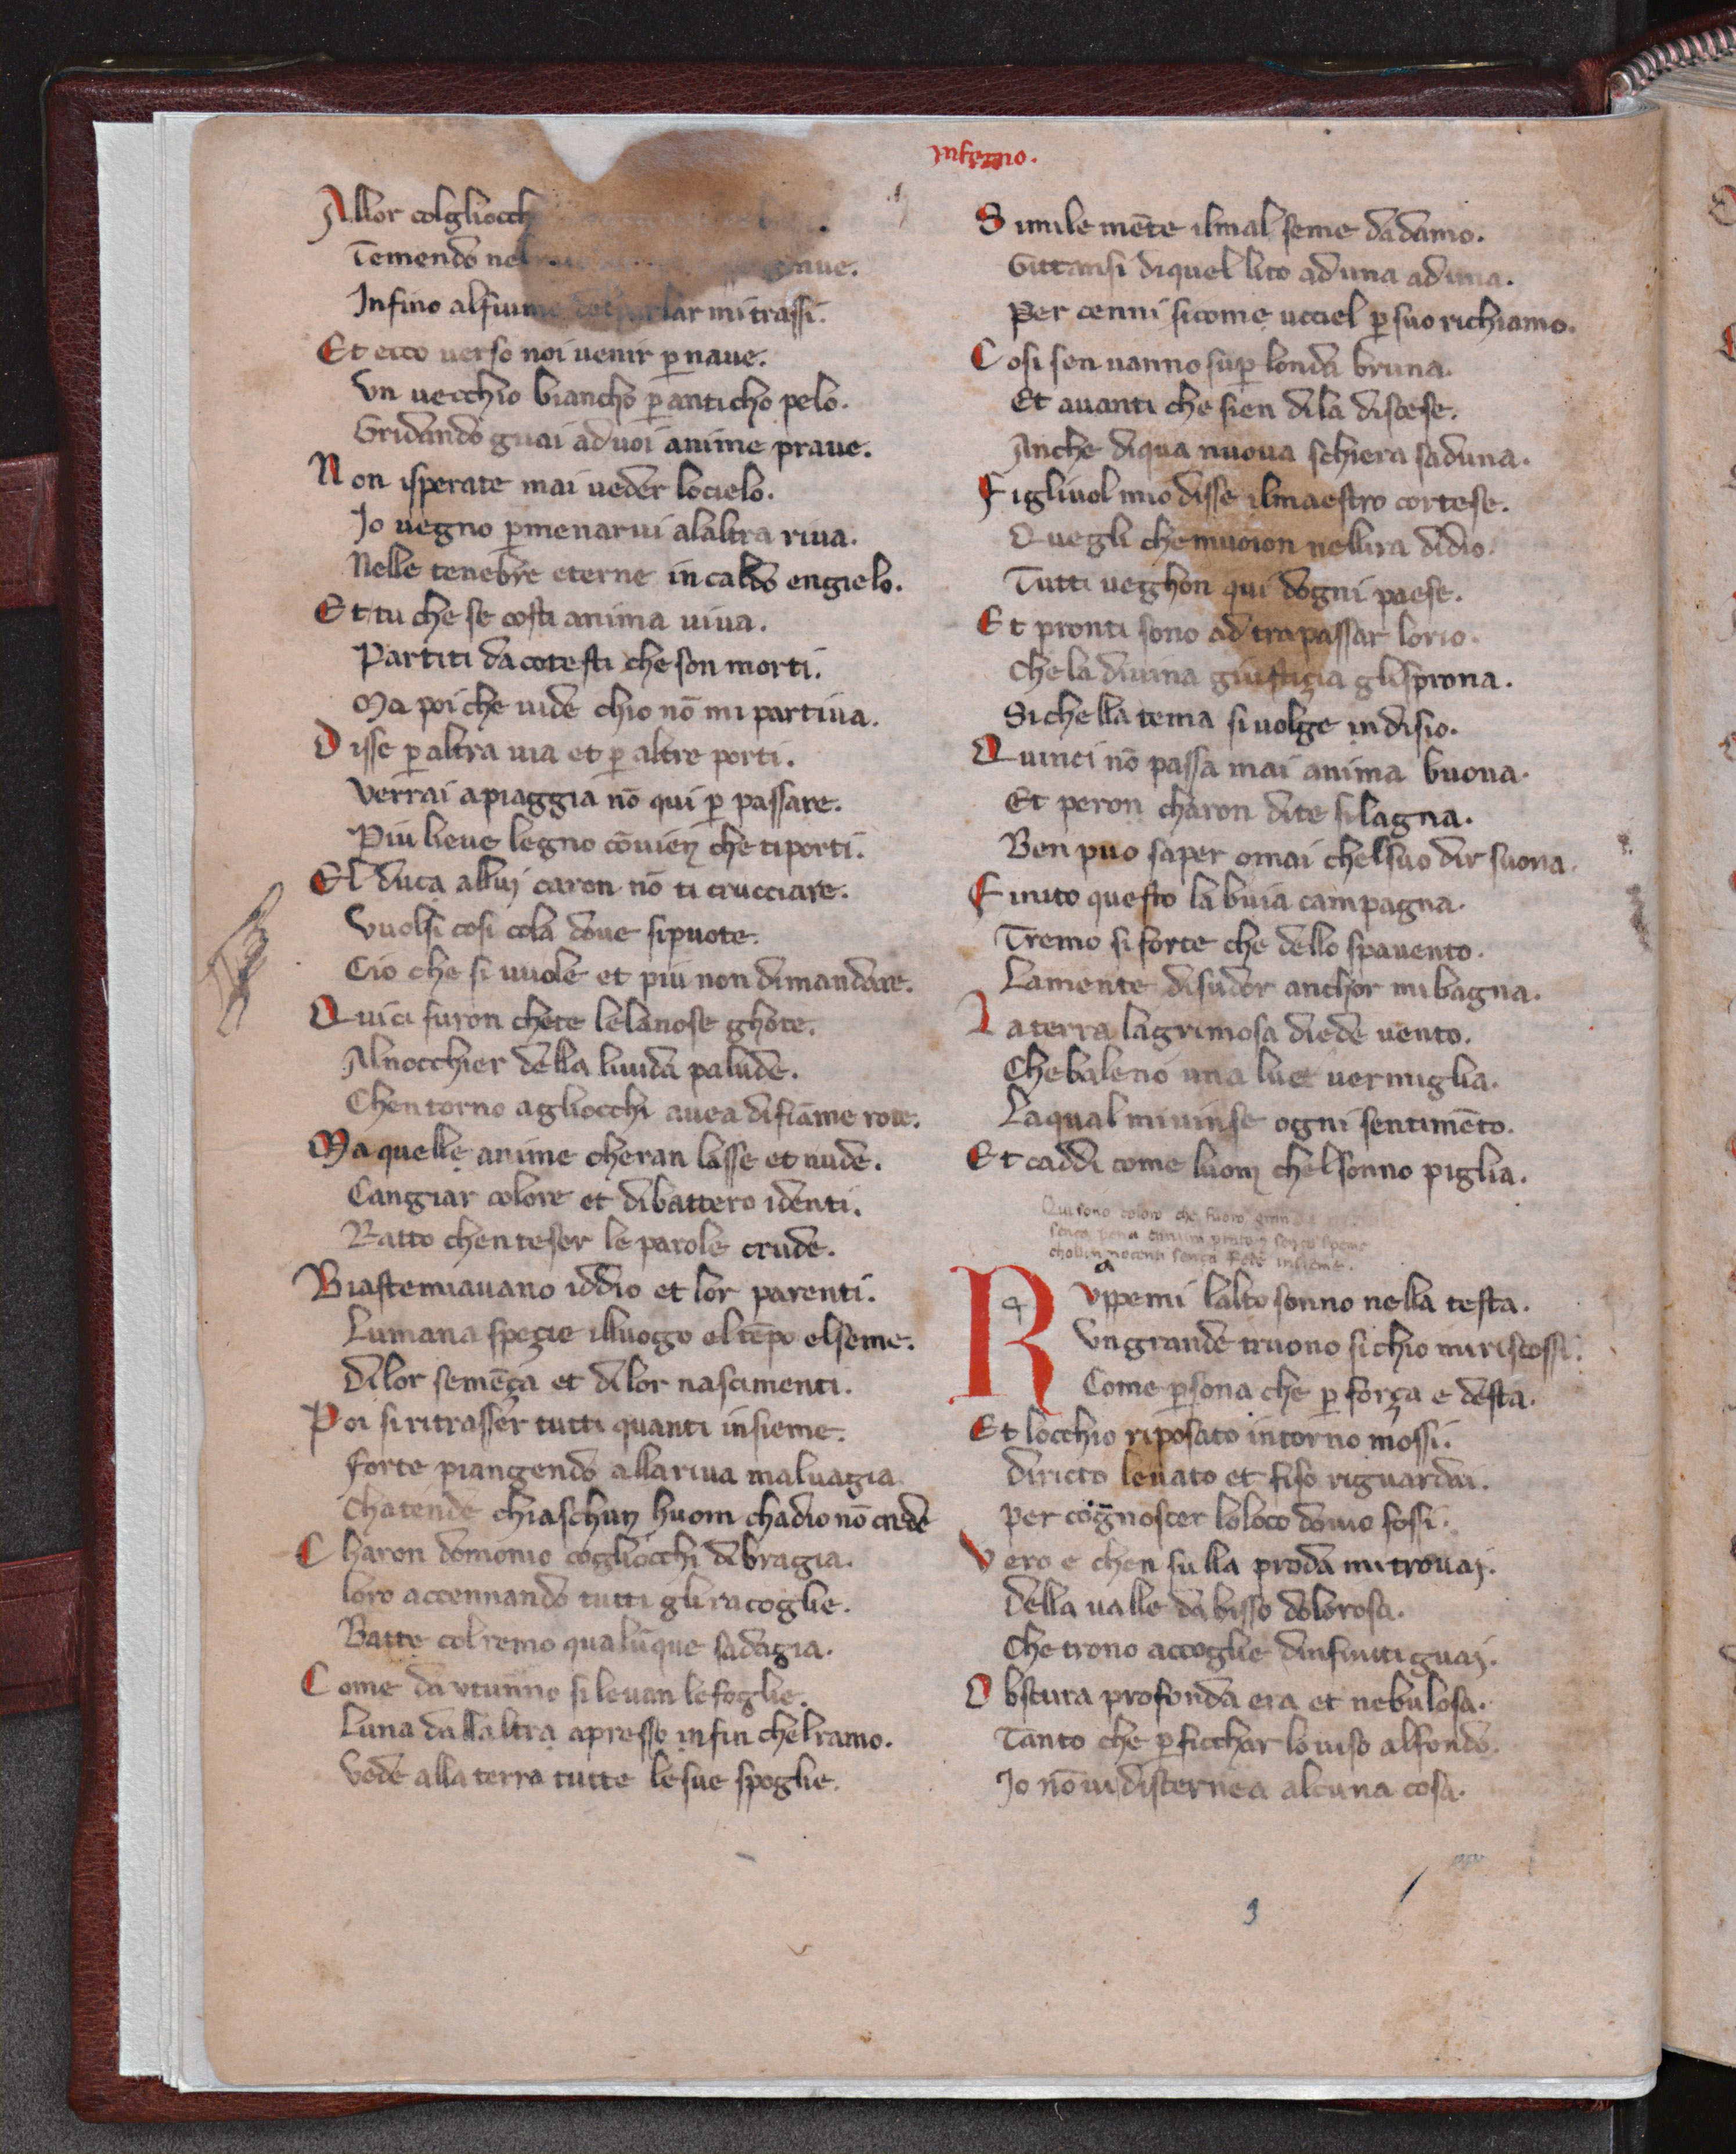 Inferno.
Allor colgliocch
Temendo nel
Infino alfiume del parlar mi trassi.
Et ecco uerso noi uenir p̱ naue.
Vn uecchio biancho p̱ anticho pelo.
Gridando guai ad uoi anime praue.
Non isperate mai ueder locielo.
Io uegno p̱menarui alaltra riua.
Nelle tenebre eterne in caldo engielo.
Et tu che se costi anima uiua.
Partiti da cotesti che son morti.
Ma poi che uide chio nō mi partiua.
Disse p̱ altra uia et p̱ altre porti.
Verrai a piaggia nō qui p̱ passare.
Piu lieue legno cōuien che tiporti.
El duca allui caron nō ti crucciare.
Vuolsi cosi cola doue sipuote.
Cio che si uuole et piu non dimandare.
Quici furon chete lelanose ghote.
Alnocchier della liuida palude.
Chentorno agliocchi auea difiāme rote.
Ma quelle anime cheran lasse et nude.
Cangiar colore et dibattero identi.
Ratto chenteser le parole crude.
Biastemiauano iddio et lor parenti.
Lumana spezie illuogo eltēpo elseme.
Dilor semēça et dilor nascimenti.
Poi si ritrasser tutti quanti insieme.
forte piangendo allariua maluagia
Chatende chiaschun huom chadio nō crede
Charon domonio cogliocchi di bragia.
loro accennando tutti gli racoglie.
Batte colremo qualūque sadagia.
Come dautunno si leuan lefoglie.
Luna dallaltra apresso infin chelramo.
Vede alla terra tutte lesue spoglie.
Simile mēte ilmal seme dadamo.
Gittansi diquel lito aduna aduna.
Per cenni sicome ucciel p̱ suo richiamo.
Cosi sen uanno sup̱ londa bruna.
Et auanti che sien dila discese.
Anche diqua nuoua schiera saduna.
Figliuol mio disse ilmaestro cortese.
Quegli chemuoion nellira didio.
Tutti ueghon qui dogni paese.
Et pronti sono ad trapassar lorio.
Che la diuina giustiçia glisprona.
Sichella tema si uolge indisio.
Quinci nō passa mai anima buona.
Et peron charon dite silagna.
Ben puo saper omai chelsuo dir suona.
Finito questo la buia campagna.
Tremo si forte che dello spauento.
Lamente disudor anchor mibagna.
La terra lagrimosa diede uento.
Chebaleno una luce uermiglia.
Laqual miuinse ogni sentimēto.
Et caddi come luom chelsonno piglia.
Qui sono coloro che furo
sença pena sença speme
innocenti sença fede insieme.
Ruppemi lalto sonno nella testa.
Vngrande truono sichio miriscossi.
Come p̱sona che p̱ força e desta.
Et locchio riposato intorno mossi.
diricto leuato et fiso riguardai.
per cognoscer loloco douio fossi.
Vero e chen sulla proda mi trouai.
Della ualle dabisso dolorosa.
Che trono accoglie dinfiniti guai.
Obscura profonda era et nebulosa.
Tanto che p̱ ficchar lo uiso alfondo.
Io nō ui discernea alcuna cosa.
3